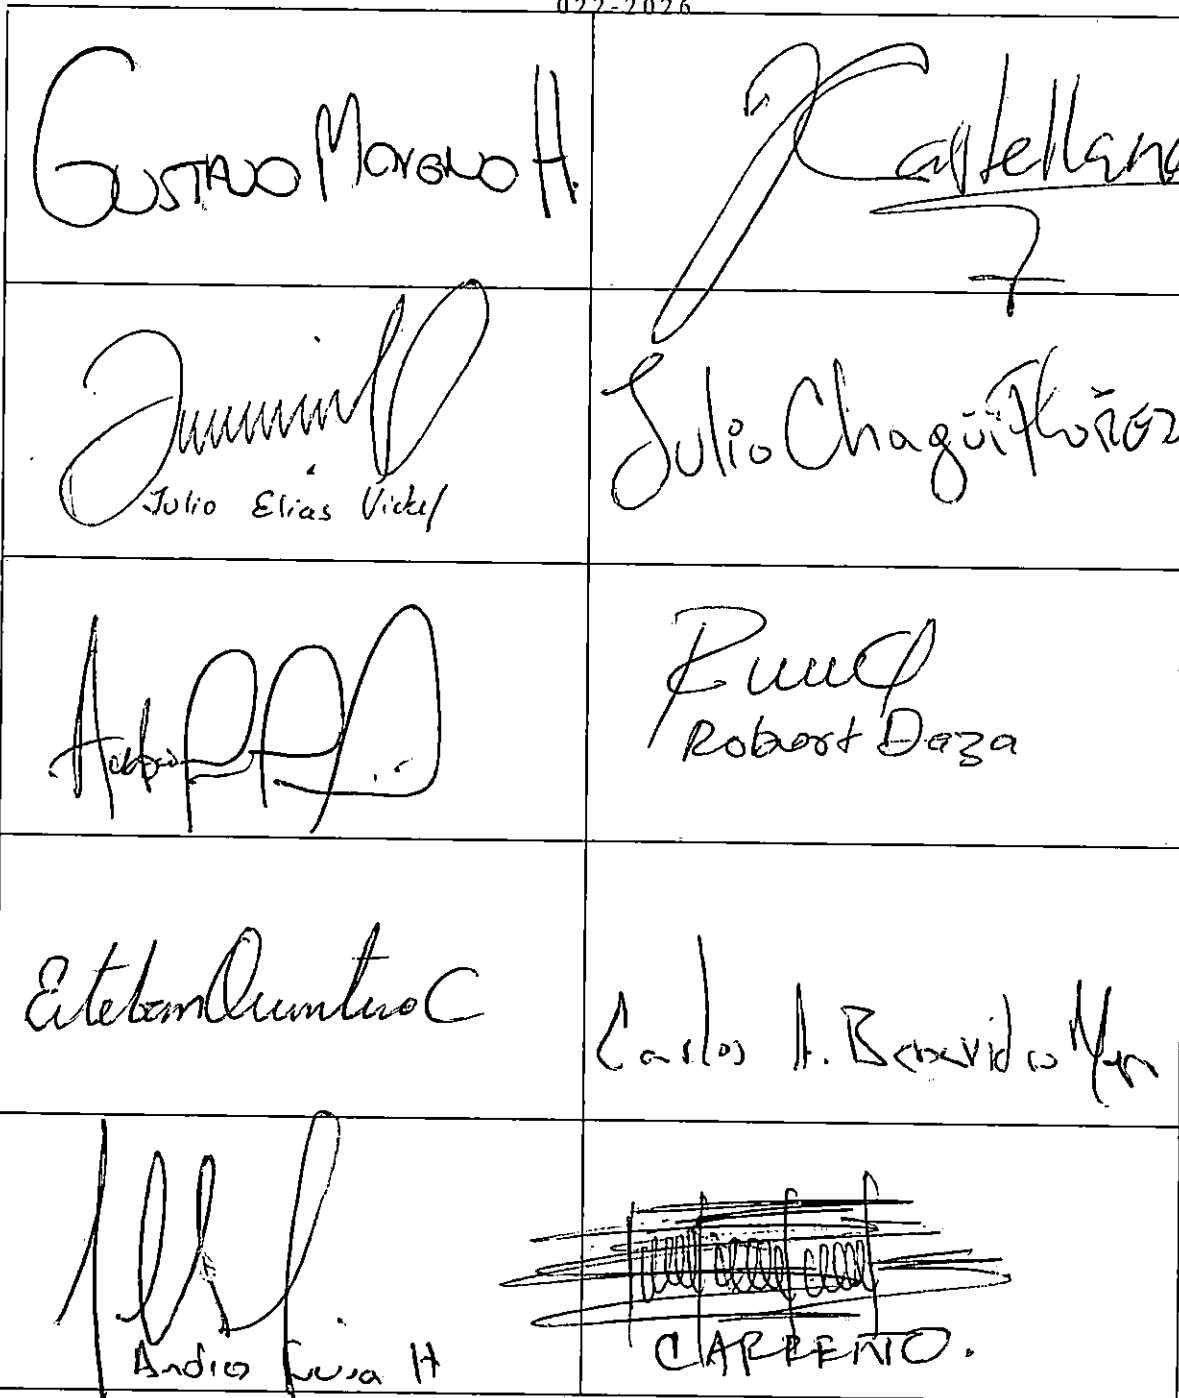 022-2026
GUSTAVO MORENO H.
JCastellanos
Julio Elias Vidal
Julio Chagüi Flórez
Robert Daza
Esteban Quintero C
Carlos A. Benavides Mora
Andres Guerra H
CARREÑO.